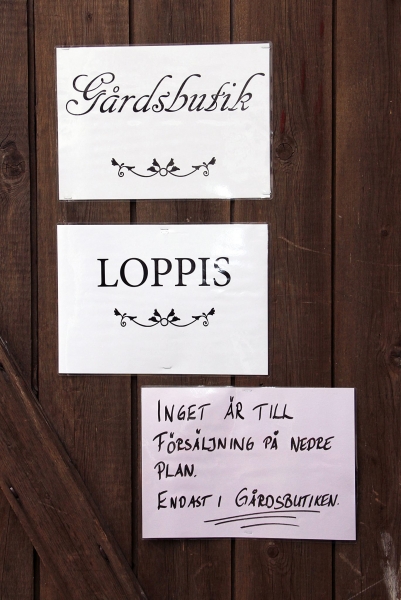 Gårdsbutik
LOPPIS
INGET ÄR TILL
FÖRSÄLJNING PÅ NEDRE
PLAN.
ENDAST I GÅRDSBUTIKEN.